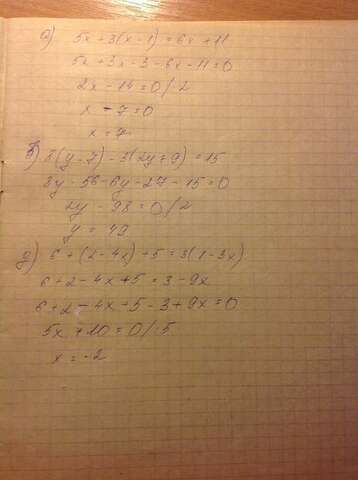 а) 5x+3(x-1)=6x+11
5x+3x-3-6x-11=0
2x-14=0/2
x-7=0
x=7
в) 8(y-7)-3(2y+9)=15
8y-56-6y-27-15=0
2y-98=0/2
y=49
д) 6+(2-4x)+5=3(1-3x)
6+2-4x+5=3-9x
6+2-4x+5-3+9x=0
5x+10=0/5
x=-2